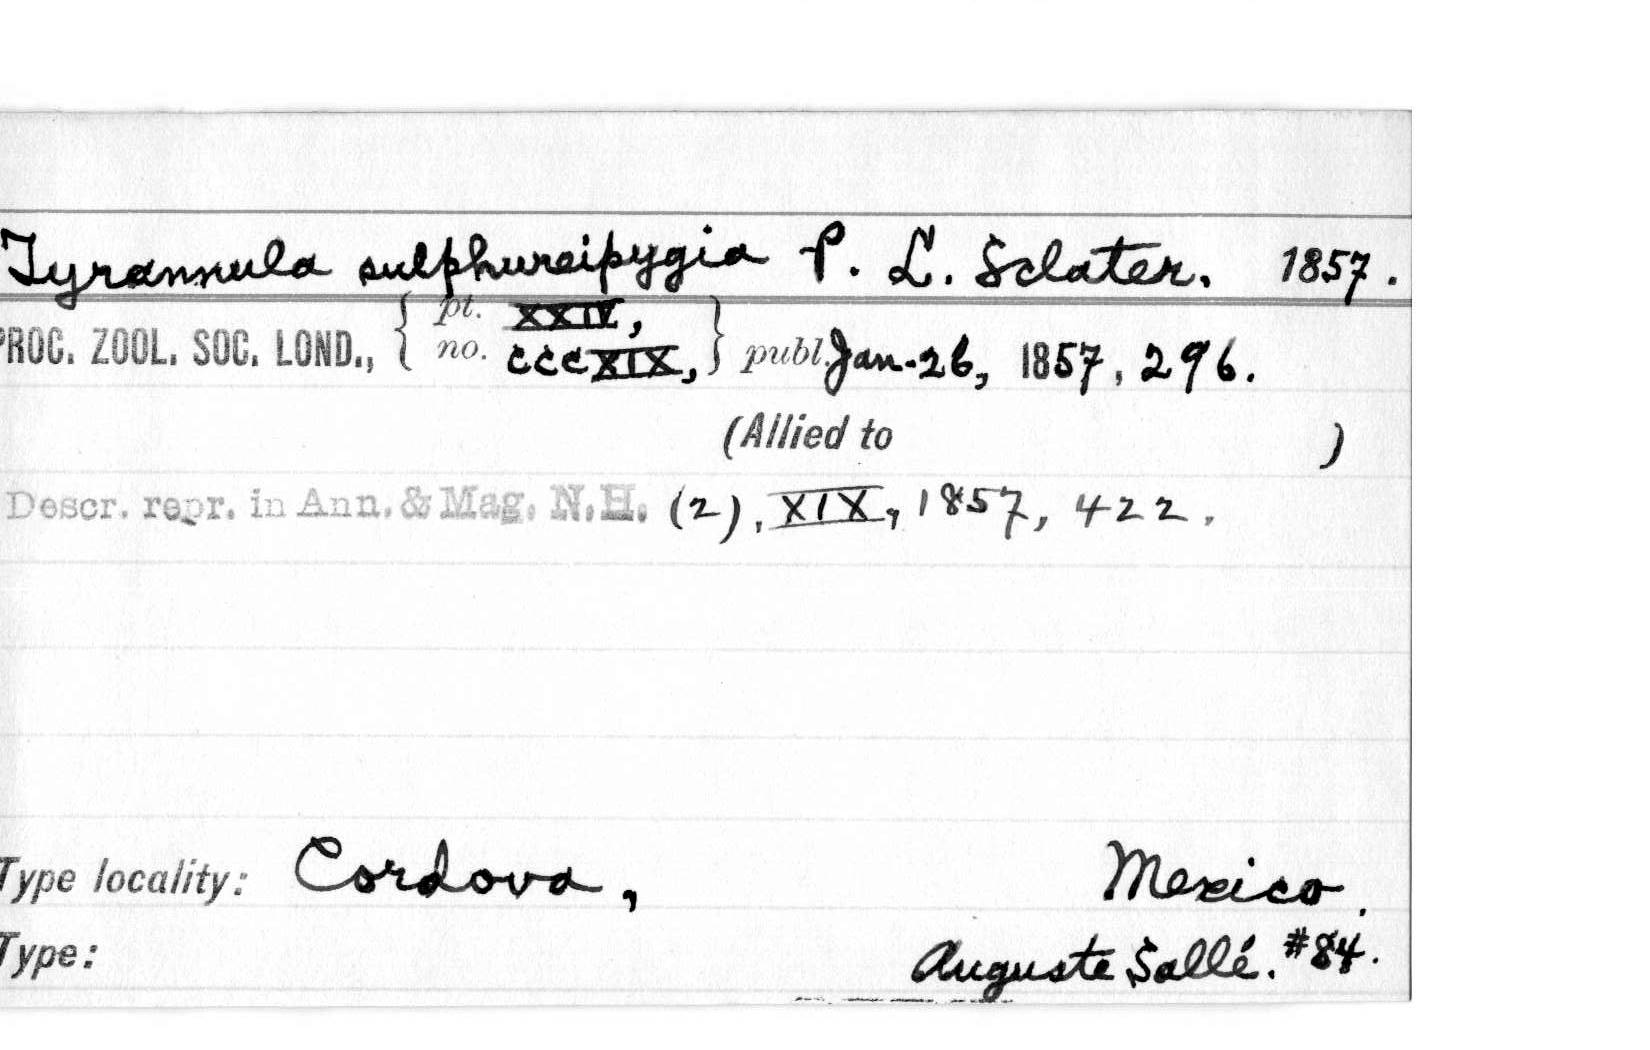 Tyrannula sulphureipygia P. L. Sclater. 1857.
PROC. ZOOL. SOC. LOND., { pt. XXIV, no. cccXIX, } publ. Jan. 26, 1857, 296.
(Allied to )
Descr. repr. in Ann. & Mag. N.H. (2), XIX, 1857, 422.
Type locality: Cordova, Mexico.
Type: Auguste Sallé. #84.